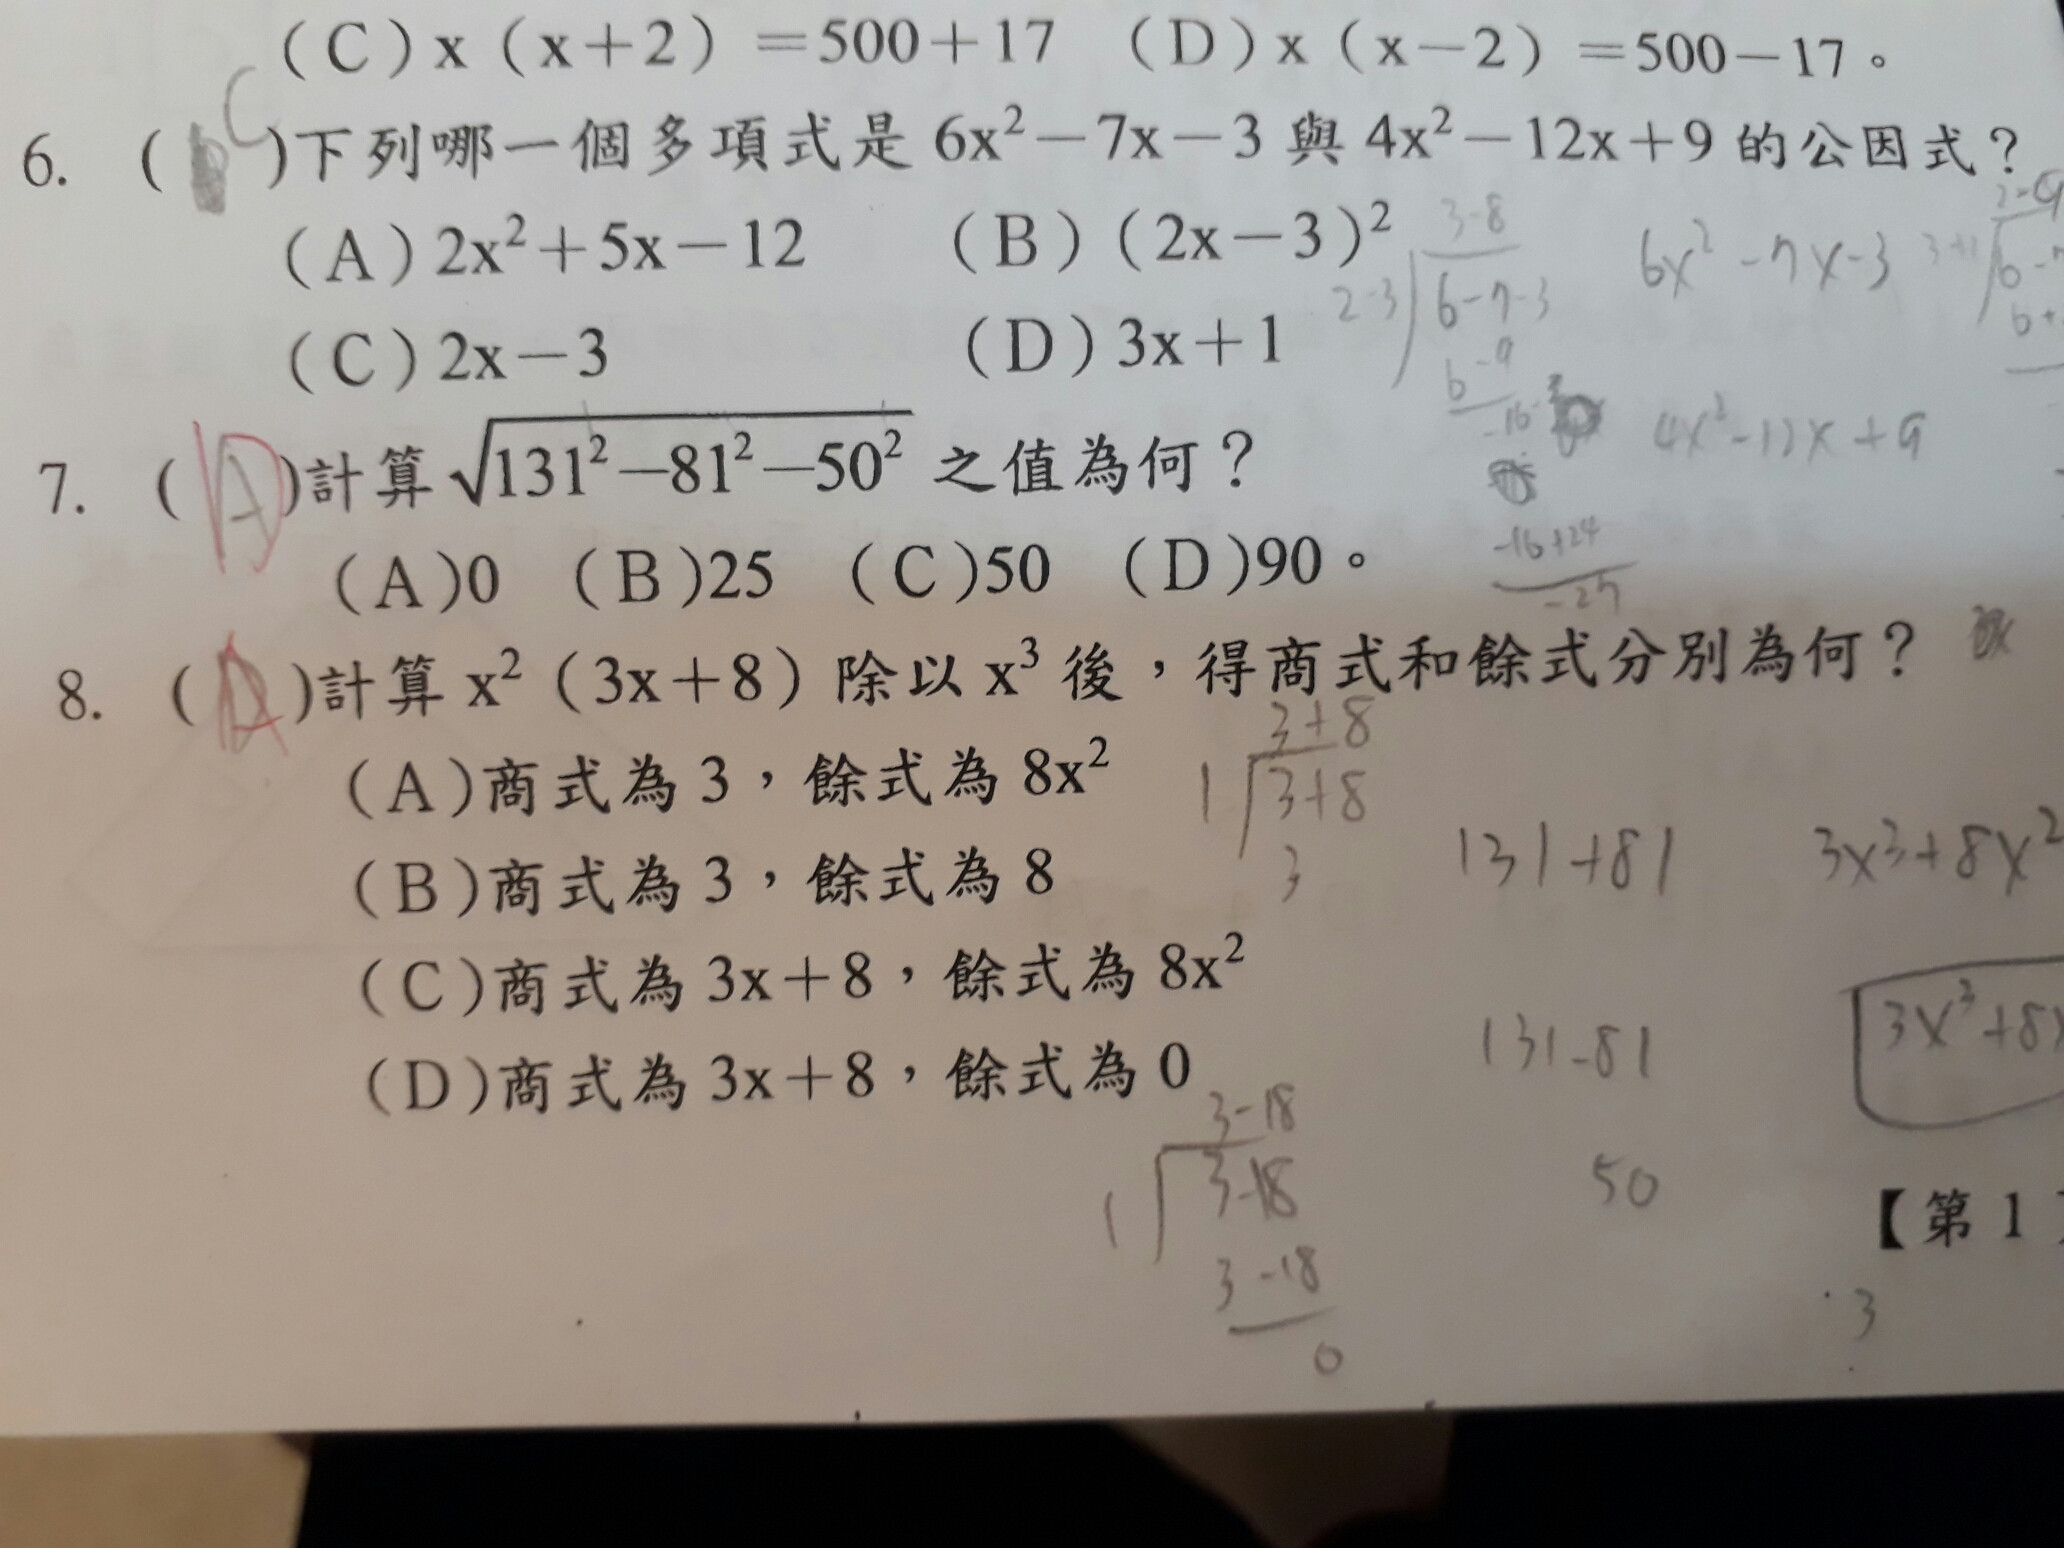 (C)x(x+2)=500+17 (D)x(x−2)=500−17。
6. ( C )下列哪一個多項式是 6x²−7x−3 與 4x²−12x+9 的公因式？
(A)2x²+5x−12 (B)(2x−3)²
(C)2x−3 (D)3x+1
3-8
2-3 6-7-3
6-9
6x²-7x-3
4x²-12x+9
7. ( A )計算 √131²−81²−50² 之值為何？
(A)0 (B)25 (C)50 (D)90。
-16+24
8. ( )計算 x²(3x+8)除以 x³ 後，得商式和餘式分別為何？
3+8
(A)商式為 3，餘式為 8x²
1 3+8
3
131+81
3x³+8x²
(B)商式為 3，餘式為 8
(C)商式為 3x+8，餘式為 8x²
131-81
3x³+8x
(D)商式為 3x+8，餘式為 0
3-18
1 3-18
50
3-18
0
【第 1
3